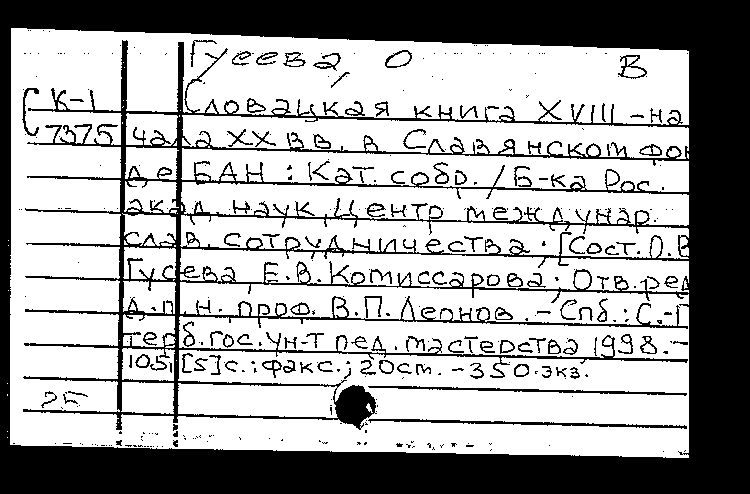 Гусева, О В
К-1 Словацкая книга XVIII - на
7375 чала XX вв. в Славянском фон
де БАН : Кат. собр. / Б-ка Рос.
акад. наук, Центр междунар.
слав. сотрудничества ; [Сост. О.В
Гусева, Е.В. Комиссарова ; Отв. ред
д.п.н., проф. В.П. Леонов . - Спб. : С.-П
терб. гос. ун-т пед. мастерства, 1998. -
105, [5] с. : факс. ; 20 ст. - 350 экз.
25